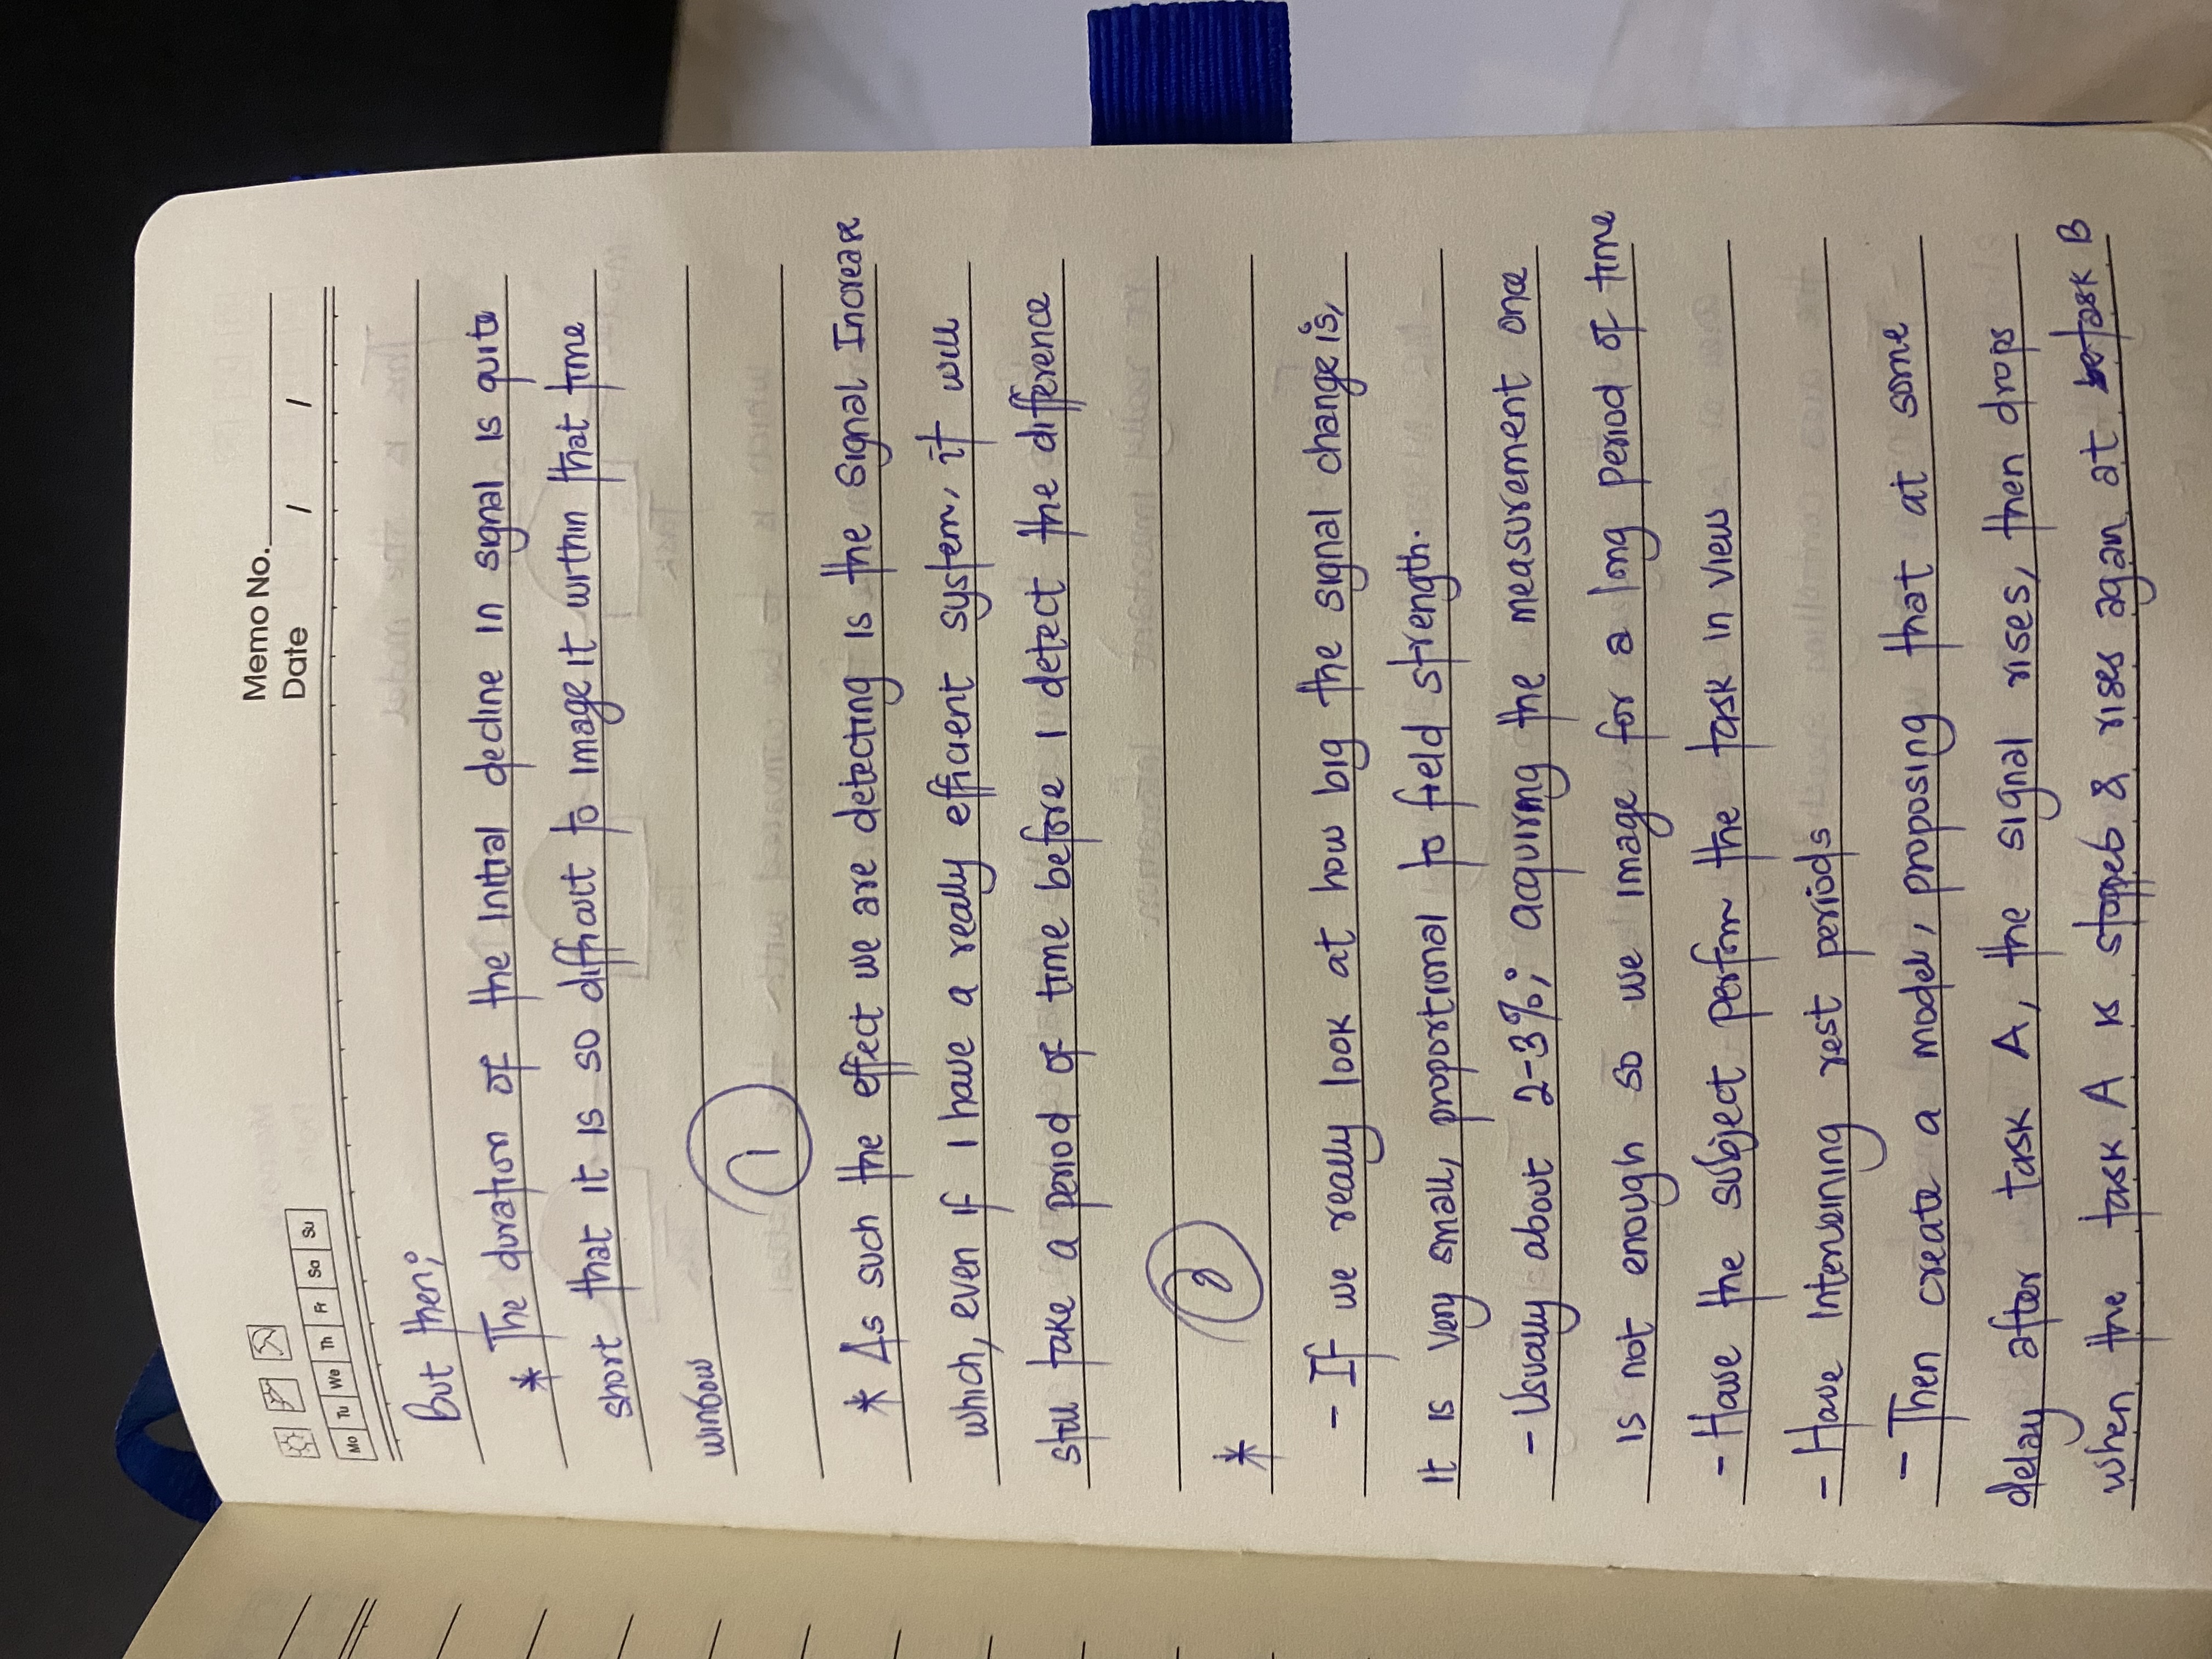 Memo No.
Date / /
Mo Tu We Th Fr Sa Su
But then;
* The duration of the initial decline in signal is quite
short that it is so difficult to image it within that time
window
1
* As such the effect we are detecting is the signal increase
which, even if I have a really efficient system, it will
still take a period of time before I detect the difference
2
*
- If we really look at how big the signal change is,
It is very small, proportional to field strength.
- Usually about 2-3%; acquiring the measurement once
is not enough so we image for a long period of time
- Have the subject perform the task in view
- Have intervening rest periods
- Then create a model, proposing that at some
delay after task A, the signal rises, then drops
when the task A is stopped & rises again at task B